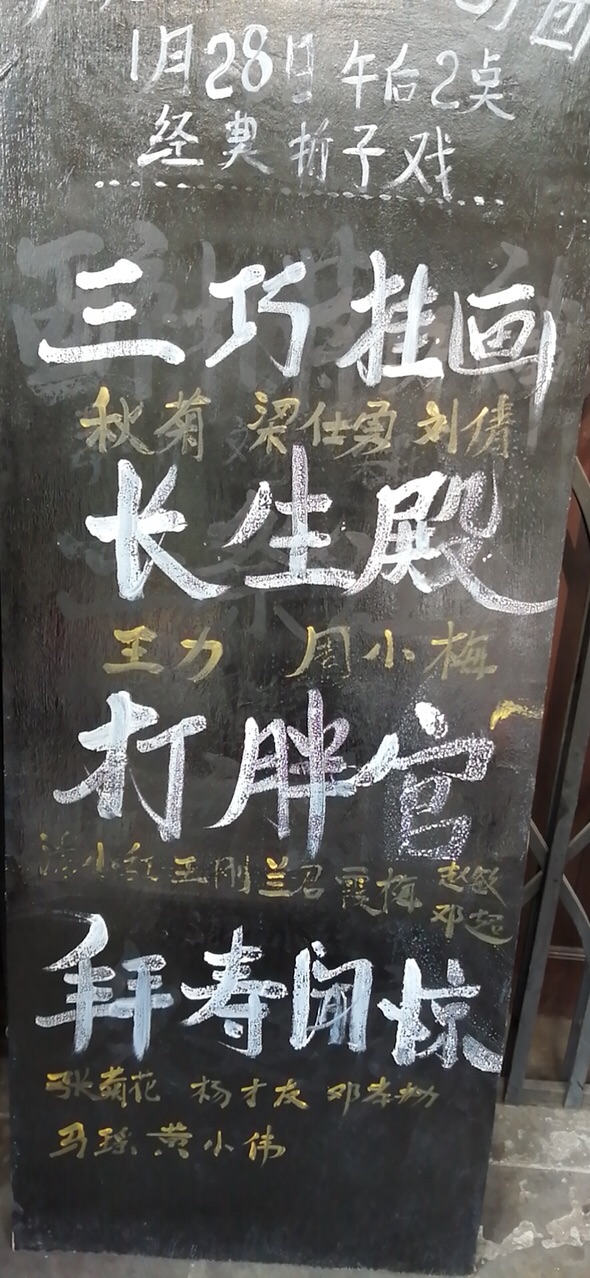 1月28日 午后2点
经典折子戏
三巧挂画
秋菊 梁仕勇 刘倩
长生殿
王力 周小梅
打胖官
小红 王刚 兰召 霞梅 赵敏
邓超
拜寿闻惊
张菊花 杨才友 邓孝
马瑶 黄小伟